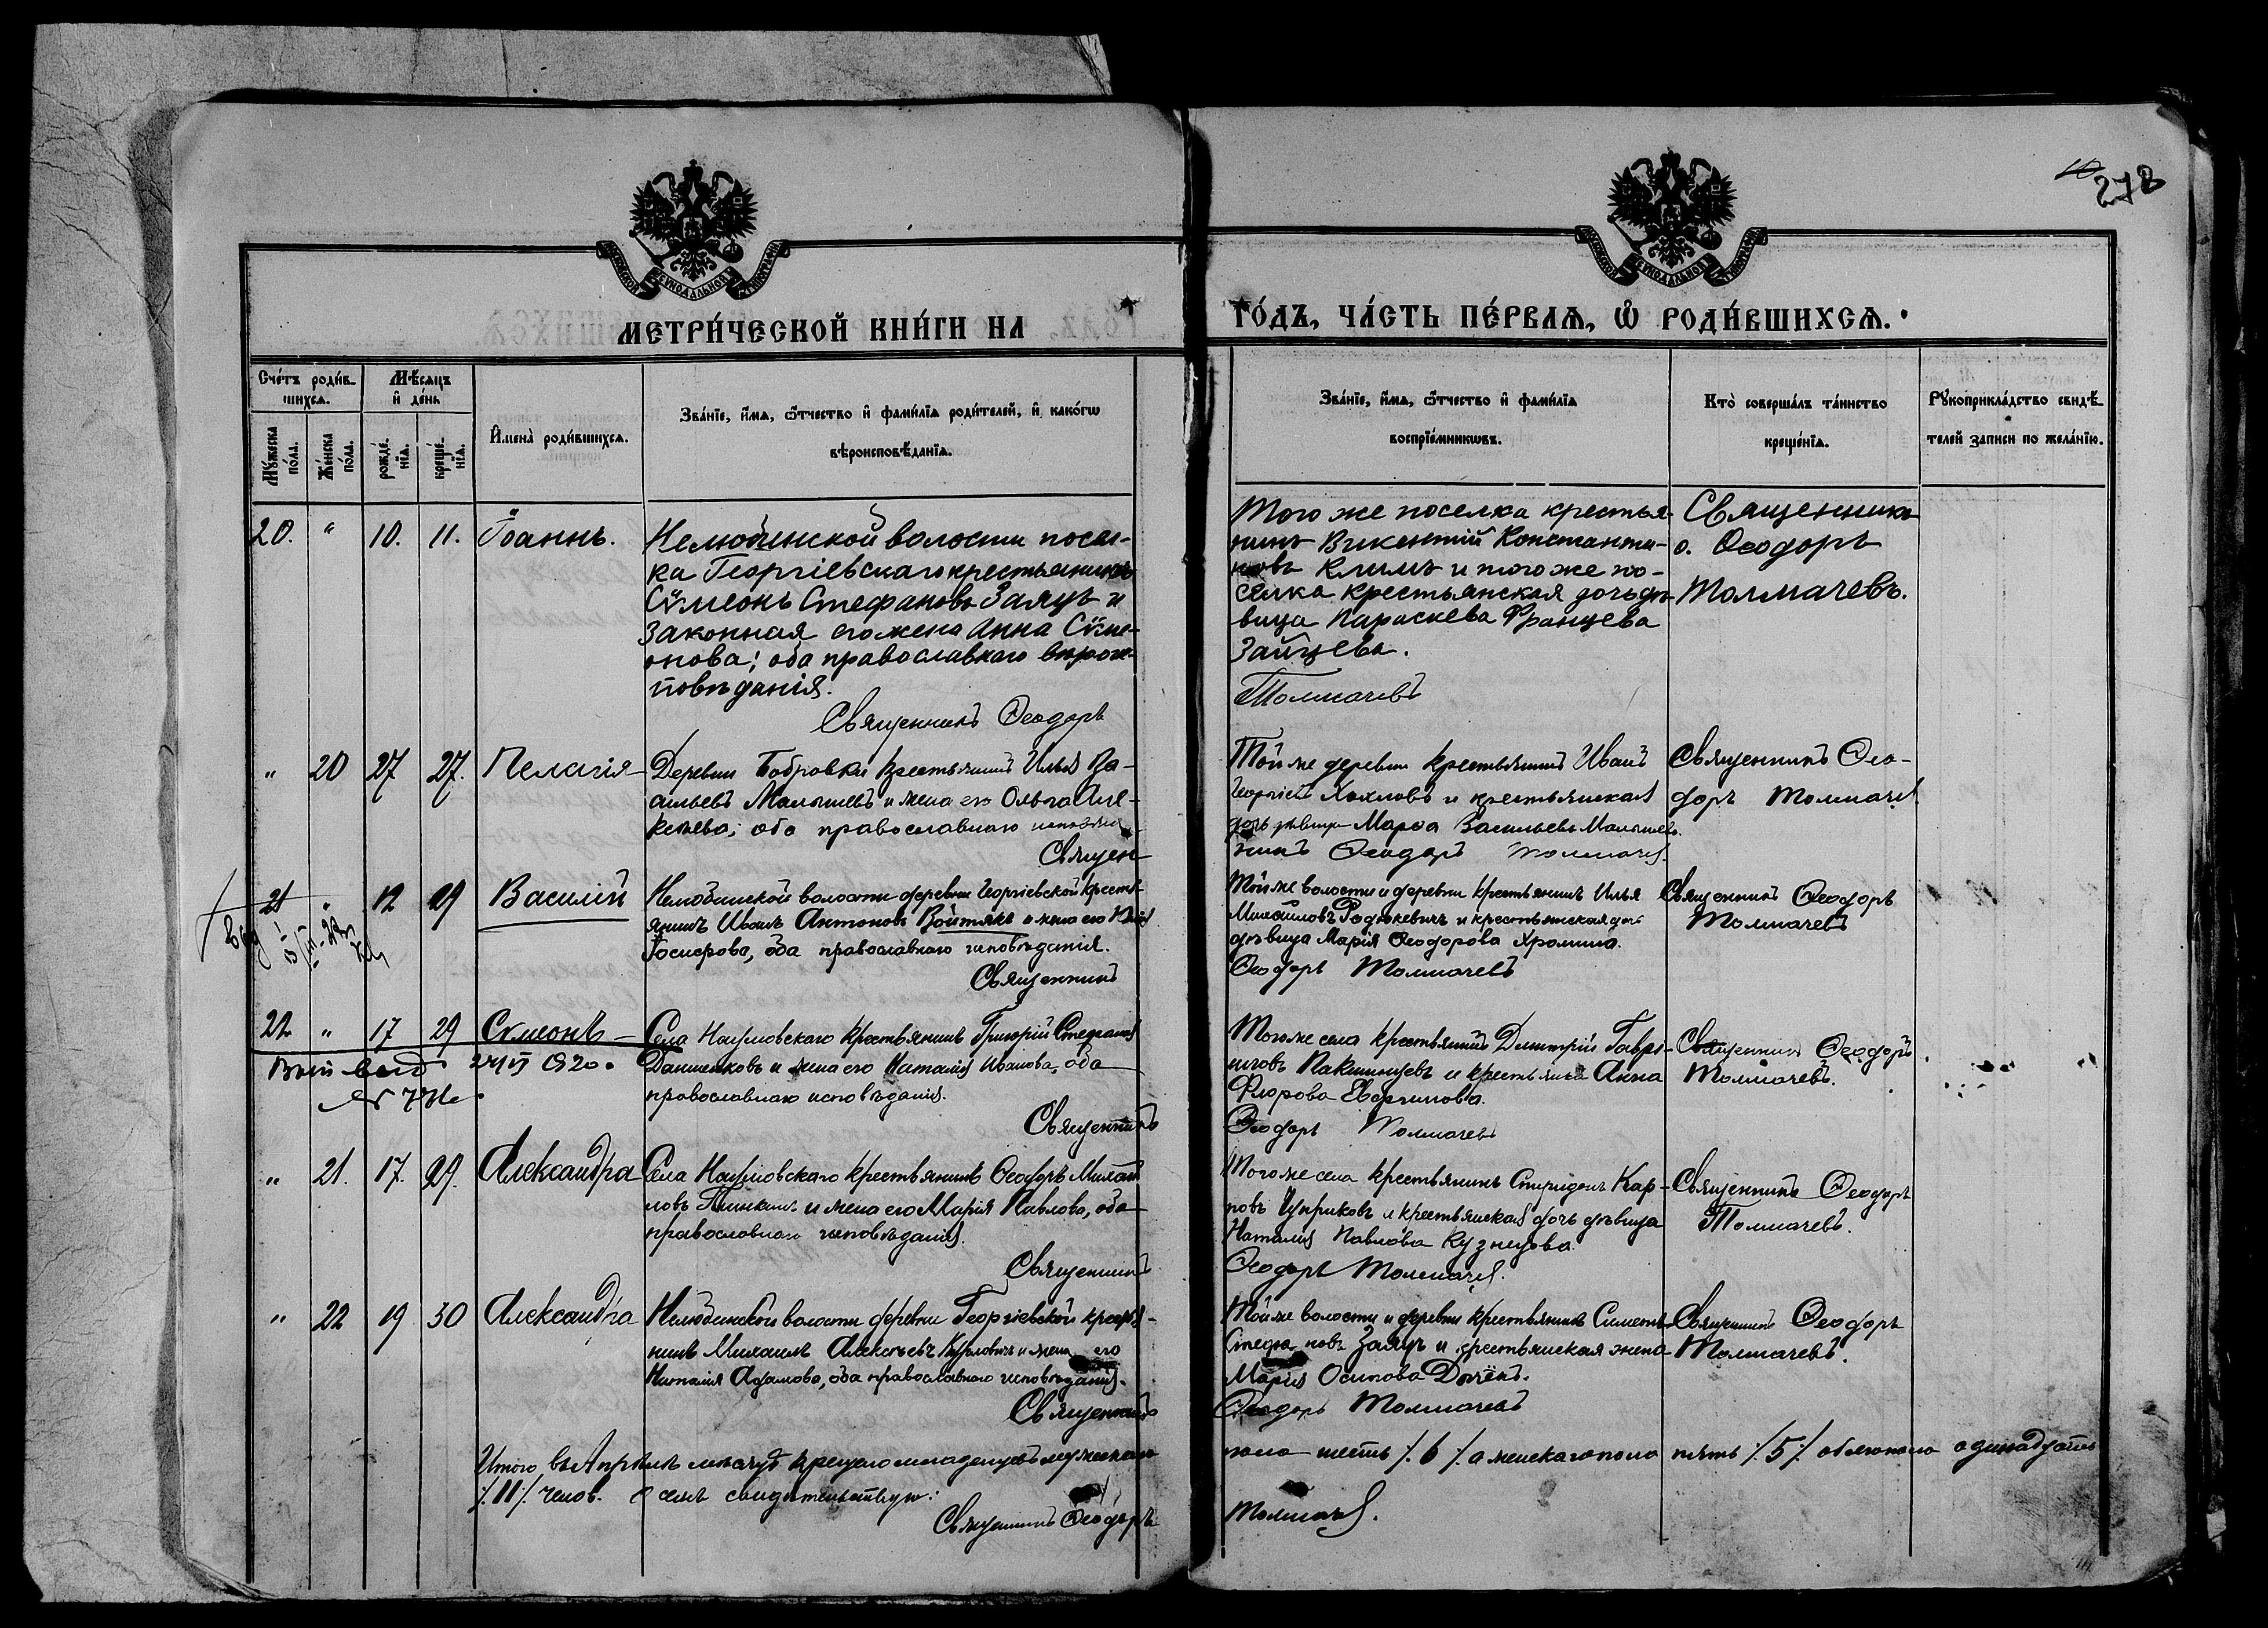 278
СѴНОДАЛЬНОЙ
СѴНОДАЛЬНОЙ
МЕТРИ́ЧЕСКОЙ КНИ́ГИ НА
ГО́ДЪ, ЧА́СТЬ ПЕ́РВАѦ, Ѽ РОДИ́ВШИХСѦ.
Сче́тъ роди́в-
шихсѧ.
Мѣ́сѧцъ
и҆ де́нь
И҆мена̀ роди́вшихсѧ.
Зва́нїе, и҆́мѧ, ѻ҆́тчество и҆ фами́лїѧ роди́телей, и҆ како́гѡ
вѣроисповѣ́данїѧ.
Мꙋ́жеска
по́ла.
Же́нска
по́ла.
рожде́-
нїѧ.
креще́-
нїѧ.
Зва́нїе, и҆́мѧ, ѻ҆́тчество и҆ фами́лїѧ
воспрїе́мникѡвъ.
Кто̀ соверша́лъ та́инство
креще́нїѧ.
Рꙋкоприкла́дство свидѣ́-
телей записи по жела́нїю.
20. " 10. 11. Іоаннъ.
Нелюбинской волости посел-
ка Георгіевскаго крестьянинъ
Сѵмеонъ Стефановъ Заяцъ и
законная его жена Анна Сѵме-
онова; оба православнаго вѣроис-
повѣданія.
Священникъ Ѳеодоръ
Того же поселка крестья-
нинъ Викентій Константи-
новъ Климъ и того же по-
селка крестьянская дочь дѣ-
вица Параскева Францева
Зайцева.
Толмачевъ
Священникъ
о. Ѳеодоръ
Толмачевъ.
" 20 27 27. Пелагія
Деревни Бобровки крестьянинъ Илья Ва-
сильевъ Малышевъ и жена его Ольга Але-
ксѣева; оба православнаго
Священ-
Той же деревни крестьянинъ Иванъ
Георгіевъ Хохловъ и крестьянская
дочь дѣвица Марѳа Васильева Малышева.
никъ Ѳеодоръ Толмачевъ.
Священникъ Ѳео-
доръ Толмачевъ
21 " 12 29 Василій
Нелюбинской волости деревни Георгіевской крестья-
янинъ Иванъ Антоновъ Войтякъ и жена его
Іосифова, оба православнаго исповѣданія.
Священникъ
Той же волости и деревни крестьянинъ Илья
Михайловъ Родюкевичъ и крестьянская дочь
дѣвица Марія Ѳеодорова Хромина.
Ѳеодоръ Толмачевъ
Священникъ Ѳеодоръ
Толмачевъ
22 " 17 29 Сѵмеонъ
Села Наумовскаго крестьянинъ Григорій Стефановъ
Даншековъ и жена его Наталія Иванова, оба
православнаго исповѣданія.
Священникъ
Того же села крестьянинъ Димитрій Гаври-
иловъ Пакшинцевъ и крестьянка Анна
Флорова Евергинова.
Ѳеодоръ Толмачевъ
Священникъ Ѳеодоръ
Толмачевъ.
" 21. 17. 29. Александра
Села Наумовскаго крестьянинъ Ѳеодоръ Михай-
ловъ и жена его Марія Павлова, оба
православнаго исповѣданія.
Священникъ
Того же села крестьянинъ Спиридонъ Кар-
повъ Чуприковъ и крестьянская дочь дѣвица
Наталія Павлова Кузнецова.
Ѳеодоръ Толмачевъ.
Священникъ Ѳеодоръ
Толмачевъ.
" 22 19 30 Александра
Нелюбинской волости деревни Георгіевской крестья-
нинъ Михаилъ Алексѣевъ и жена его
Наталія Адамова, оба православнаго исповѣданія.
Священникъ
Той же волости и деревни крестьянинъ Симеонъ
Стефановъ Заяцъ и крестьянская жена
Марія Осипова
Ѳеодоръ Толмачевъ
Священникъ Ѳеодоръ
Толмачевъ.
Итого въ Апрѣлѣ мѣсяцѣ крещено младенцевъ мужескаго пола шесть /.6/. а женскаго пола пять /.5/. обоего пола одиннадцать
/.11/. челов. о семъ свидѣтельствую:
Священникъ Ѳеодоръ Толмачевъ.